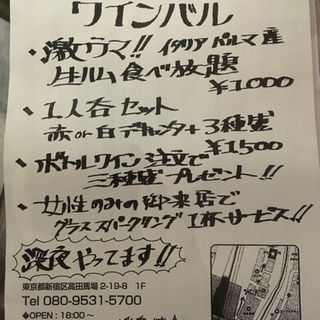 ワインバル
・激ウマ!! イタリアパルマ産
生ハム食べ放題
¥1000
・1人呑セット
赤or白デキャンタ+3種盛
¥1500
・ボトルワイン注文で
三種盛プレゼント!!
・女性のみの御来店で
グラススパークリング1杯サービス!!
深夜やってます!!
東京都新宿区高田馬場2-19-8 1F
Tel 080-9531-5700
◆OPEN:18:00~